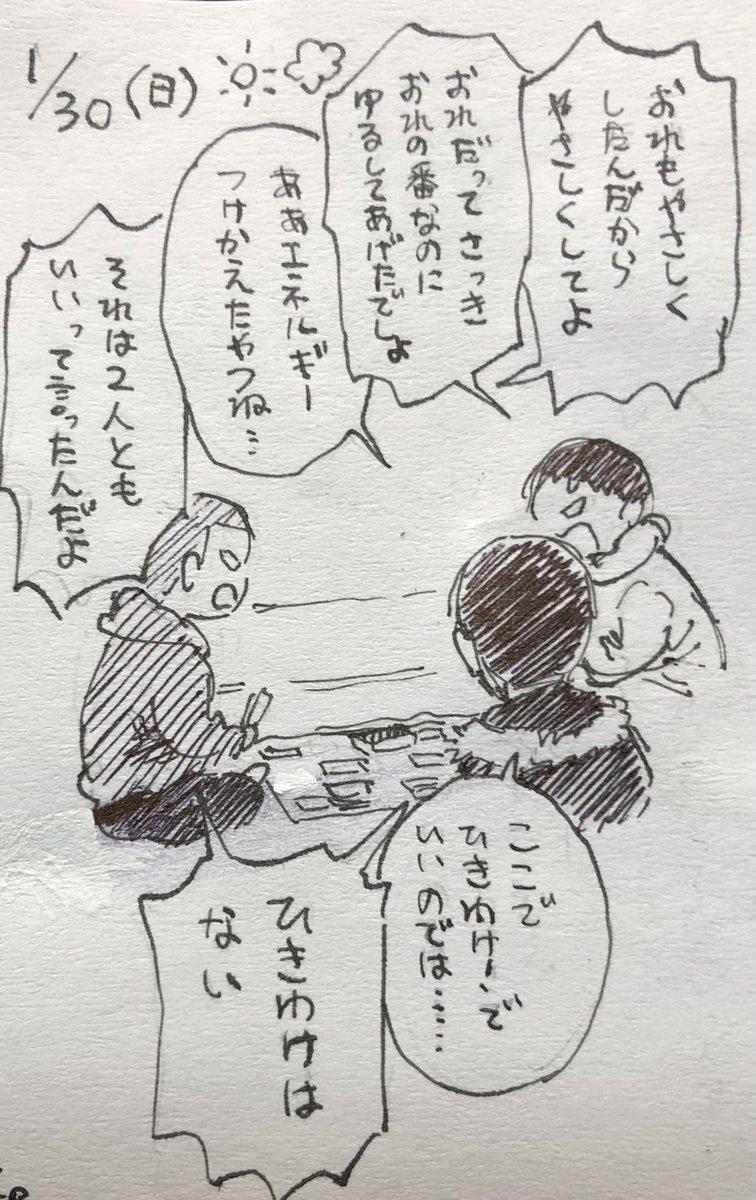 1/30(日)
おれもやさしく
したんだから
やさしくしてよ
おれだってさっき
おれの番なのに
ゆるしてあげたでしょ
ああエネルギー
つけかえたやつね…
それは2人とも
いいって言ったんだよ
ここで
ひきわけーで
いいのでは……
ひきわけは
ない